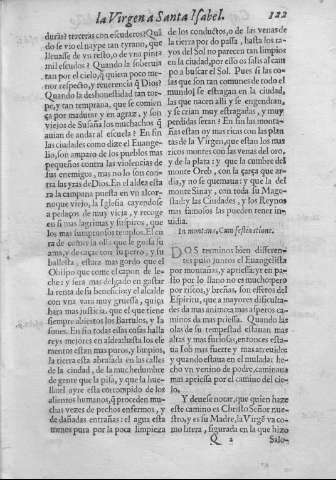 la Virgen a Santa Isabel. 122
duras? terceras con escuderos? Quã
do se vio el naype tan tyrano, que
lleuasse de vn resto, o de vna pinta
mil escudos? Quando la soberuia
tan por el cielo, q̃ quien poco me-
nor respeto, y reuerencia q̃ Dios?
Quando la deshonestidad tan tor-
pe, y tan temprana, que se comien
ça por madurar y en agraz, y son
viejos de Susaña los muchachos q̃
auian de andar al escuela? En fin
las ciudades como dize el Euange-
lio, son amparo de los pueblos mas
pequeños contra las violencias de
sus enemigos, mas no lo son con-
tra las yras de Dios. En el aldea esta
ra la campana puesta en vn alcor-
noque viejo, la Iglesia cayendose
a pedaços de muy vieja, y recoge
en si mas lagrimas y suspiros, que
los mas sumptuosos templos. El cu
ra de castrar la olla que le guisa su
ama, y de caçar con su perro, y su
ballesta, estara mas gordo que el
Obispo que come el capon de le-
che: y sera mas delgado en gastar
la renta de su beneficio: y el alcalde
con vna vara muy gruessa, quiça
hara mas justicia, que el que tiene
siempre abiertos los Bartulos, y Ia
sones. En fin todas essas cosas halla
reys mejores en aldea: hasta los ele
mentos estan mas puros, y limpios,
la tierra esta abrasada en las calles
de la ciudad, de la muchedumbre
de gente que la pisa, y que la hue-
lla: el ayre esta corrompido de los
alientos humanos, q̃ proceden mu-
chas vezes de pechos enfermos, y
de dañadas entrañas: el agua esta
menos pura por la poca limpieza
de los conductos, o de las venas de
la tierra por do passa, hasta los ra-
yos del Sol no parecen tan limpios
en la ciudad, por esso os salis al cam
po a buscar el Sol. Pues si las co-
sas que son tan comunes de todo el
mundo, se estragan en la ciudad,
las que nacen alli y se engendran,
y se crian muy estragadas, y muy
perdidas seran? En fin las monta-
ñas estan oy mas ricas con las plan
tas de la Virgen, que estan los mas
ricos montes con las venas del oro,
y de la plata: y que la cumbre del
monte Oreb, con la çarça que ar-
dia, y no se quemaua: y que la del
monte Sinay, con toda su Mage-
stad: y las Ciudades, y los Reynos
mas famosos las pueden tener in-
uidia.
In montana, Cum festinatione.
DOS terminos bien differen-
tes puso juntos el Euangelista
por montañas, y apriessa: yr en pas-
so por lo llano no es mucho; pero
por riscos, y breñas, son esferços del
Espiritu, que a mayores dificulta-
des da mas animo: a mas asperos ca-
minos da mas priessa. Quando las
olas de su tempestad estauan mas
altas y mas furiosas, entonces esta-
ua Iob mas fuerte y mas entero:
y quando estaua en el muladar he-
cho vn venino de podre, caminaua
mas apriessa por el camino del cie-
lo.
Y deuese notar, que quien haze
este camino es Christo Señor nue-
stro, y es su Madre, la Virgẽ va co-
mo litera, figurada en la que hizo
Q 2 Salo-